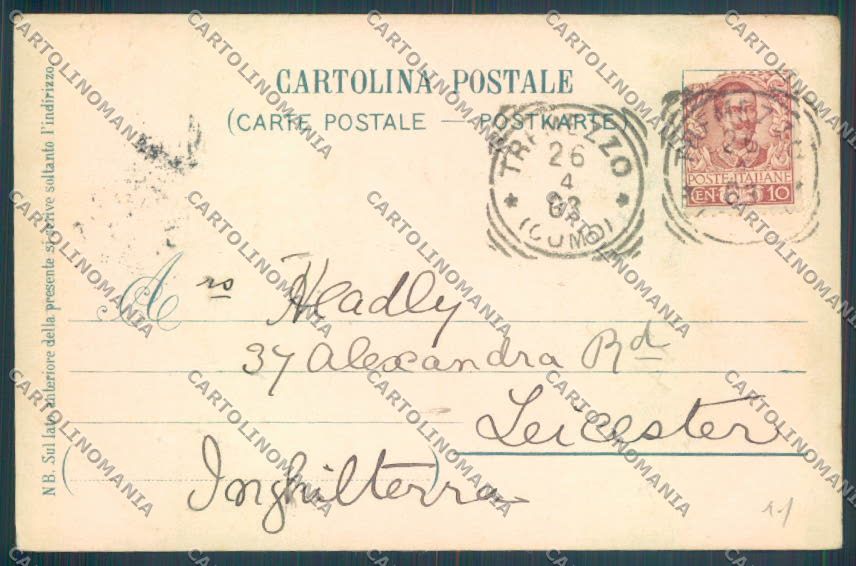 CARTOLINA POSTALE
(CARTE POSTALE — POSTKARTE)
TREMEZZO
26
4
03
(COMO)
POSTE ITALIANE
CENT. 10
NB. Sul lato anteriore della presente si scrive soltanto l'indirizzo
A rs Headly
37 Alexandra Rd
Leicester
Inghilterra
CARTOLINOMANIA